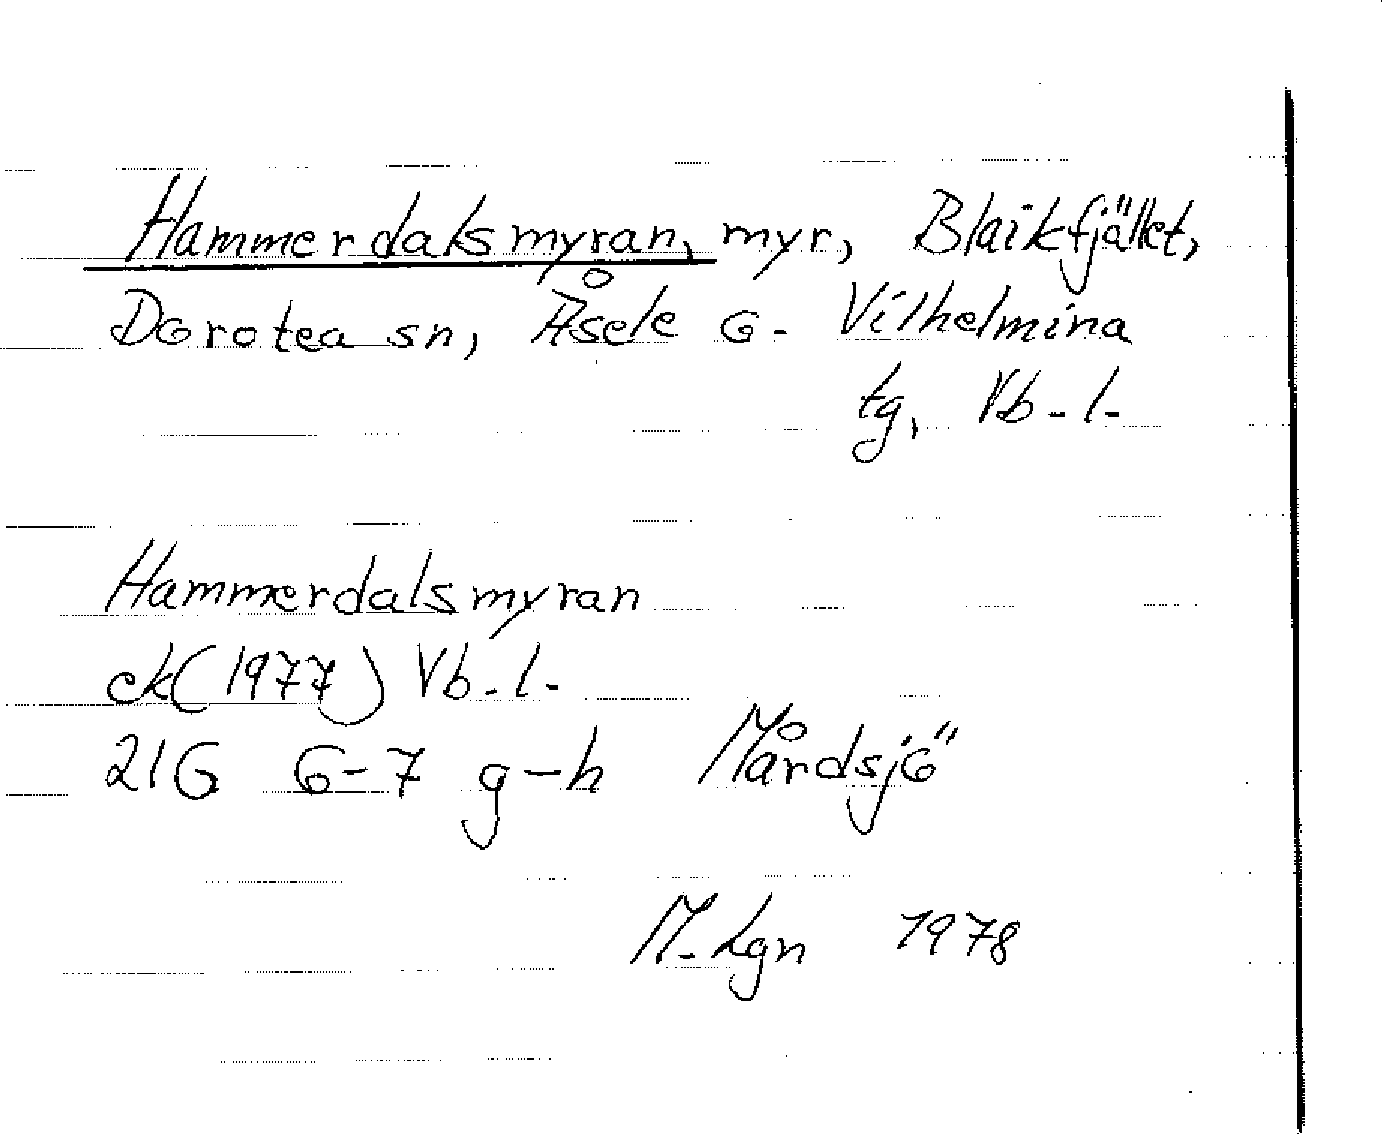 Hammerdalsmyran, myr, Blaikfjället,
Dorotea sn, Åsele o. Vilhelmina
tg, Vb.l.
Hammerdalsmyran
ek(1977) Vb.l.
21G 6-7 g-h Mårdsjö
M.Lgn 1978